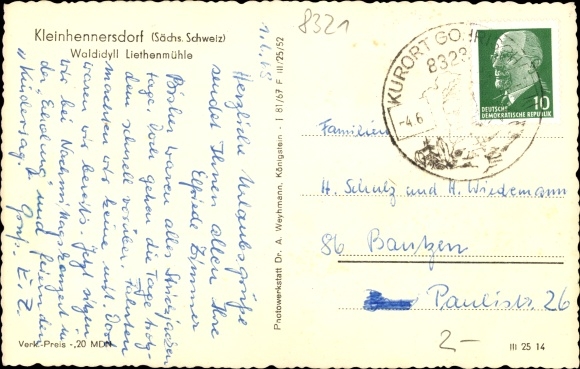 Kleinhennersdorf (Sächs. Schweiz)
Waldidyll Liethenmühle
8321
1.6.68
Herzliche Urlaubsgrüße
sendet Ihnen allen Ihre
Elfriede Zimmer
Bisher waren alles
tage. Doch gehen die Tage trotz-
dem schnell vorüber.
machten wir keine mit. Dort
waren wir bereits. Jetzt sitzen
wir bei Nachmittagskonzert in
der "Erholung" und feiern den
"Kindertag". Gruß: E. Z.
Verk.-Preis -,20 MDN
Photowerkstatt Dr. A. Weyhmann, Königstein - I 81/67 F III/25/52
KURORT GOHR
8323
-4.6
DEUTSCHE
DEMOKRATISCHE REPUBLIK
10
Familien
H. Schulz und H. Wiedemann
86 Bautzen
Paulistr. 26
2-
III 25 14